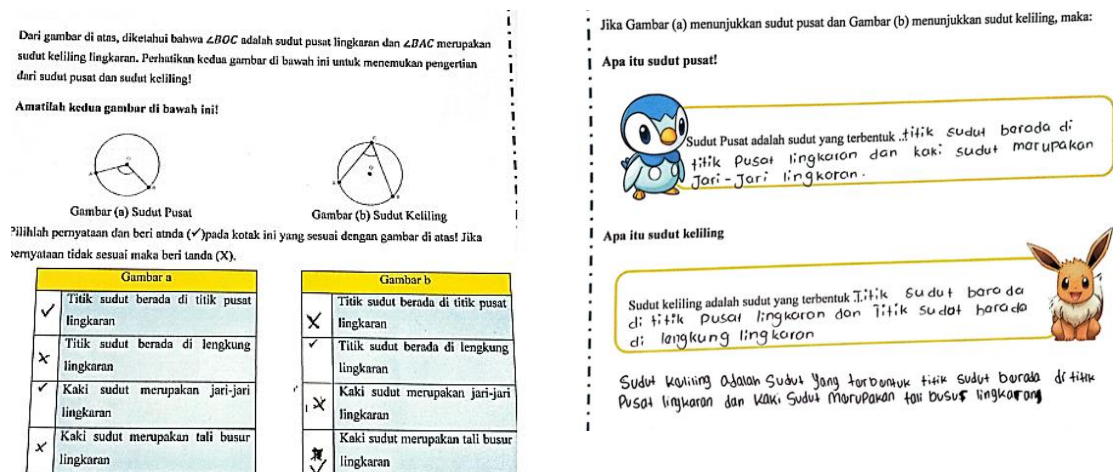 Dari gambar di atas, diketahui bahwa ∠BOC adalah sudut pusat lingkaran dan ∠BAC merupakan
sudut keliling lingkaran. Perhatikan kedua gambar di bawah ini untuk menemukan pengertian
dari sudut pusat dan sudut keliling!
Amatilah kedua gambar di bawah ini!
Gambar (a) Sudut Pusat
Gambar (b) Sudut Keliling
Pilihlah pernyataan dan beri atnda (✓)pada kotak ini yang sesuai dengan gambar di atas! Jika
pernyataan tidak sesuai maka beri tanda (X).
Gambar a
✓ Titik sudut berada di titik pusat
lingkaran
X Titik sudut berada di lengkung
lingkaran
✓ Kaki sudut merupakan jari-jari
lingkaran
X Kaki sudut merupakan tali busur
lingkaran
Gambar b
X Titik sudut berada di titik pusat
lingkaran
✓ Titik sudut berada di lengkung
lingkaran
X Kaki sudut merupakan jari-jari
lingkaran
✓ Kaki sudut merupakan tali busur
lingkaran
Jika Gambar (a) menunjukkan sudut pusat dan Gambar (b) menunjukkan sudut keliling, maka:
Apa itu sudut pusat!
Sudut Pusat adalah sudut yang terbentuk ..titik sudut berada di
titik Pusat lingkaran dan kaki sudut merupakan
Jari-Jari lingkaran.
Apa itu sudut keliling
Sudut keliling adalah sudut yang terbentuk Titik sudut barada
di titik pusat lingkaran dan Titik sudat harada
di langkung lingkaran
Sudut Kaliling adalah Sudut yang tarbentuk titik sudut barada di titik
Pusat lingkaran dan kaki Sudut Marupakan tali busur lingkaran